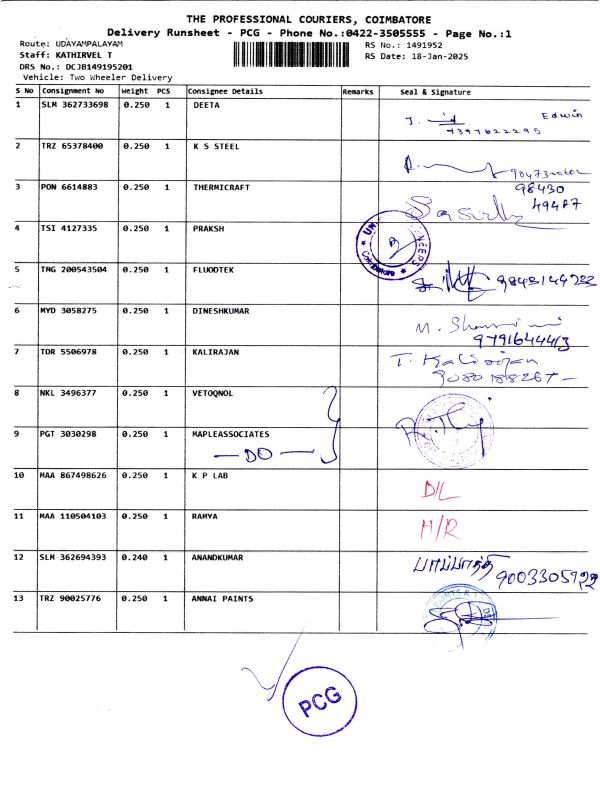 THE PROFESSIONAL COURIERS, COIMBATORE
Delivery Runsheet - PCG - Phone No.:0422-3505555 - Page No.:1
Route: UDAYAMPALAYAM
RS No.: 1491952
Staff: KATHIRVEL T
RS Date: 18-Jan-2025
DRS No.: DCJB149195201
Vehicle: Two Wheeler Delivery
S No Consignment No Weight PCS Consignee Details Remarks Seal & Signature
1 SLM 362733698 0.250 1 DEETA
Edwin
7397622295
2 TRZ 65378400 0.250 1 K S STEEL
3 PON 6614883 0.250 1 THERMICRAFT
98430
49487
4 TSI 4127335 0.250 1 PRAKSH
5 TNG 200543504 0.250 1 FLUODTEK
9842144722
6 MYD 3058275 0.250 1 DINESHKUMAR
9791644413
7 TDR 5506978 0.250 1 KALIRAJAN T. Kalirajan
9080188267
8 NKL 3496377 0.250 1 VETOQNOL
9 PGT 3030298 0.250 1 MAPLEASSOCIATES
DO
10 MAA 867498626 0.250 1 K P LAB D/L
11 MAA 110504103 0.250 1 RAMYA H/R
12 SLM 362694393 0.240 1 ANANDKUMAR
9003305722
13 TRZ 90025776 0.250 1 ANNAI PAINTS
PCG